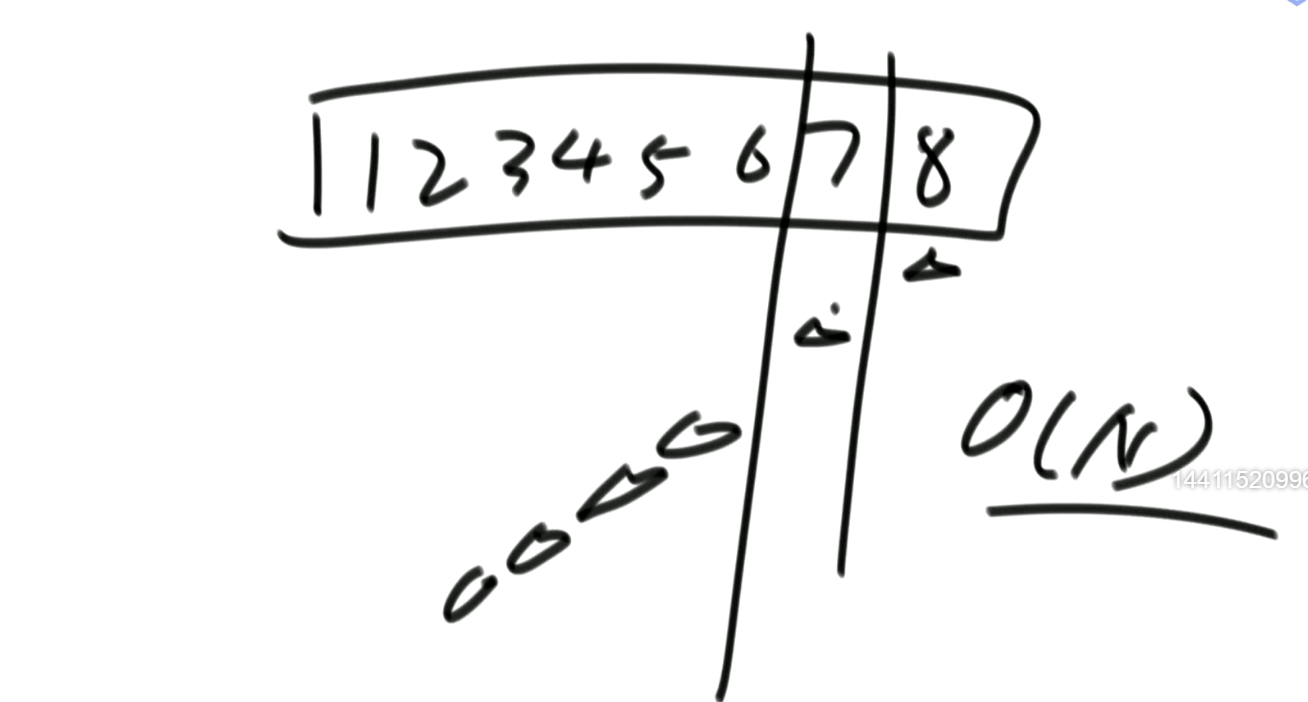 1 2 3 4 5 6 7 8
O(N)
14411520996